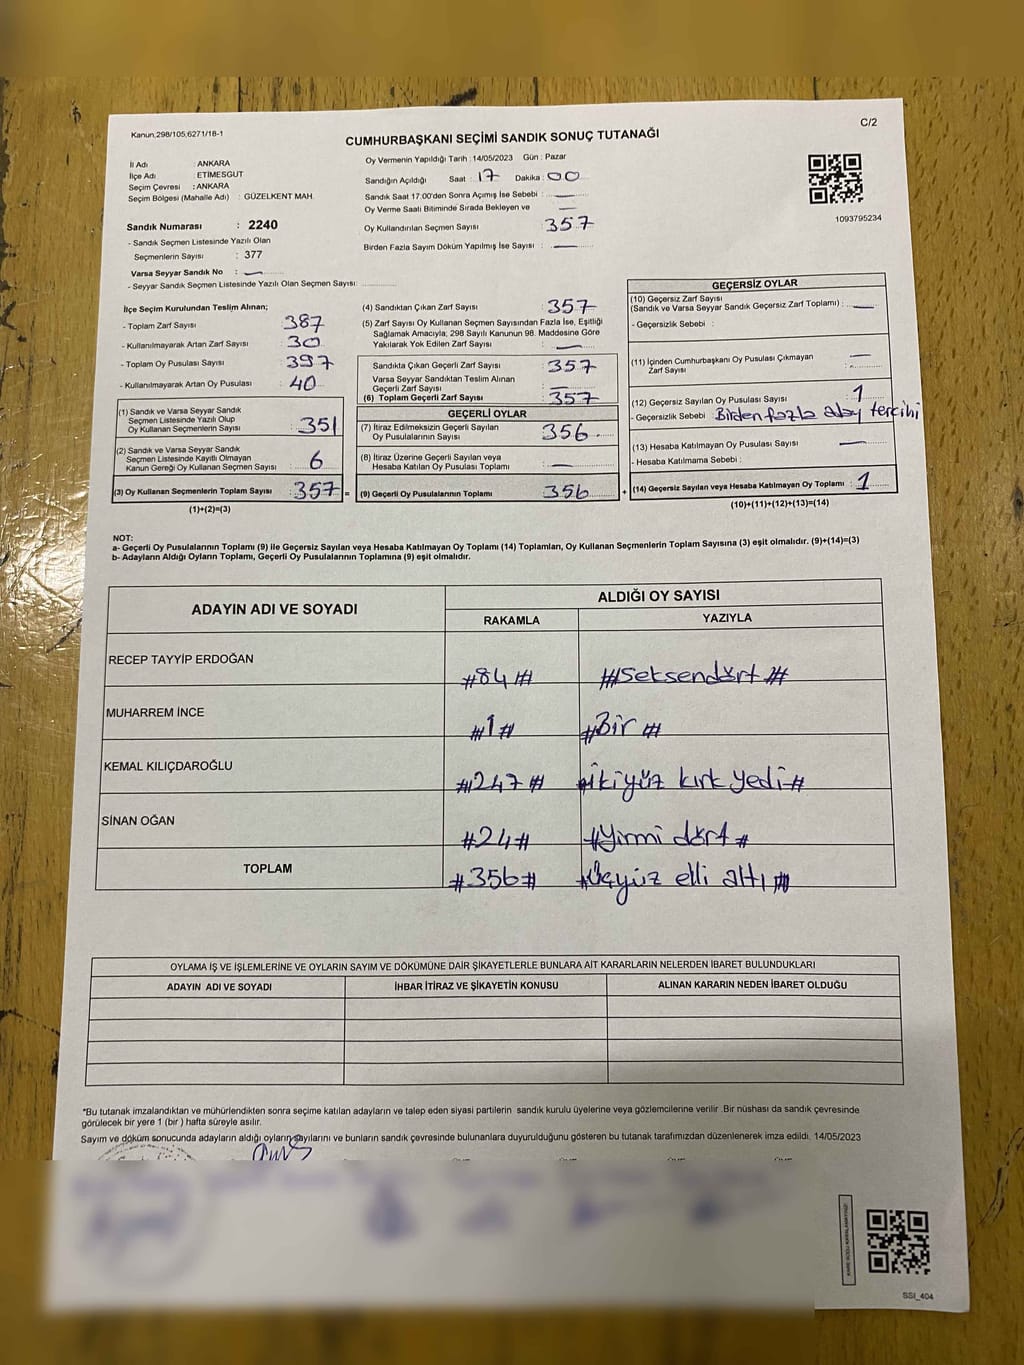 Kanun,298/105,6271/18-1
C/2
CUMHURBAŞKANI SEÇİMİ SANDIK SONUÇ TUTANAĞI
İl Adı : ANKARA
İlçe Adı : ETİMESGUT
Seçim Çevresi : ANKARA
Seçim Bölgesi (Mahalle Adı) : GÜZELKENT MAH.
Sandık Numarası : 2240
- Sandık Seçmen Listesinde Yazılı Olan
Seçmenlerin Sayısı : 377
Varsa Seyyar Sandık No : —
- Seyyar Sandık Seçmen Listesinde Yazılı Olan Seçmen Sayısı:
Oy Vermenin Yapıldığı Tarih : 14/05/2023 Gün : Pazar
Sandığın Açıldığı Saat : 17 Dakika : 00
Sandık Saat 17.00'den Sonra Açımış İse Sebebi : —
Oy Verme Saati Bitiminde Sırada Bekleyen ve —
Oy Kullandırılan Seçmen Sayısı 357
Birden Fazla Sayım Döküm Yapılmış İse Sayısı : —
1093795234
İlçe Seçim Kurulundan Teslim Alınan;
- Toplam Zarf Sayısı 387
- Kullanılmayarak Artan Zarf Sayısı 30
- Toplam Oy Pusulası Sayısı 397
- Kullanılmayarak Artan Oy Pusulası 40
(1) Sandık ve Varsa Seyyar Sandık
Seçmen Listesinde Yazılı Olup
Oy Kullanan Seçmenlerin Sayısı : 351
(2) Sandık ve Varsa Seyyar Sandık
Seçmen Listesinde Kayıtlı Olmayan
Kanun Gereği Oy Kullanan Seçmen Sayısı : 6
(3) Oy Kullanan Seçmenlerin Toplam Sayısı : 357 =
(1)+(2)=(3)
(4) Sandıktan Çıkan Zarf Sayısı : 357
(5) Zarf Sayısı Oy Kullanan Seçmen Sayısından Fazla İse, Eşitliği
Sağlamak Amacıyla; 298 Sayılı Kanunun 98. Maddesine Göre
Yakılarak Yok Edilen Zarf Sayısı : —
Sandıkta Çıkan Geçerli Zarf Sayısı : 357
Varsa Seyyar Sandıktan Teslim Alınan
Geçerli Zarf Sayısı : —
(6) Toplam Geçerli Zarf Sayısı : 357
GEÇERLİ OYLAR
(7) İtiraz Edilmeksizin Geçerli Sayılan
Oy Pusulalarının Sayısı 356
(8) İtiraz Üzerine Geçerli Sayılan veya
Hesaba Katılan Oy Pusulası Toplamı —
(9) Geçerli Oy Pusulalarının Toplamı 356 +
GEÇERSİZ OYLAR
(10) Geçersiz Zarf Sayısı
(Sandık ve Varsa Seyyar Sandık Geçersiz Zarf Toplamı) : —
- Geçersizlik Sebebi :
(11) İçinden Cumhurbaşkanı Oy Pusulası Çıkmayan —
Zarf Sayısı : —
(12) Geçersiz Sayılan Oy Pusulası Sayısı : 1
- Geçersizlik Sebebi : Birden fazla aday tercihi
(13) Hesaba Katılmayan Oy Pusulası Sayısı : —
- Hesaba Katılmama Sebebi :
(14) Geçersiz Sayılan veya Hesaba Katılmayan Oy Toplamı : 1
(10)+(11)+(12)+(13)=(14)
NOT:
a- Geçerli Oy Pusulalarının Toplamı (9) ile Geçersiz Sayılan veya Hesaba Katılmayan Oy Toplamı (14) Toplamları, Oy Kullanan Seçmenlerin Toplam Sayısına (3) eşit olmalıdır. (9)+(14)=(3)
b- Adayların Aldığı Oyların Toplamı, Geçerli Oy Pusulalarının Toplamına (9) eşit olmalıdır.
ADAYIN ADI VE SOYADI
ALDIĞI OY SAYISI
RAKAMLA YAZIYLA
RECEP TAYYİP ERDOĞAN #84# #Seksendört#
MUHARREM İNCE #1# #Bir#
KEMAL KILIÇDAROĞLU #247# #ikiyüz kırk yedi#
SİNAN OĞAN #24# #Yirmi dört#
TOPLAM #356# #Üçyüz elli altı#
OYLAMA İŞ VE İŞLEMLERİNE VE OYLARIN SAYIM VE DÖKÜMÜNE DAİR ŞİKAYETLERLE BUNLARA AİT KARARLARIN NELERDEN İBARET BULUNDUKLARI
ADAYIN ADI VE SOYADI İHBAR İTİRAZ VE ŞİKAYETİN KONUSU ALINAN KARARIN NEDEN İBARET OLDUĞU
*Bu tutanak imzalandıktan ve mühürlendikten sonra seçime katılan adayların ve talep eden siyasi partilerin sandık kurulu üyelerine veya gözlemcilerine verilir .Bir nüshası da sandık çevresinde
görülecek bir yere 1 (bir ) hafta süreyle asılır.
Sayım ve döküm sonucunda adayların aldığı oyların sayılarını ve bunların sandık çevresinde bulunanlara duyurulduğunu gösteren bu tutanak tarafımızdan düzenlenerek imza edildi. 14/05/2023
SSI_404